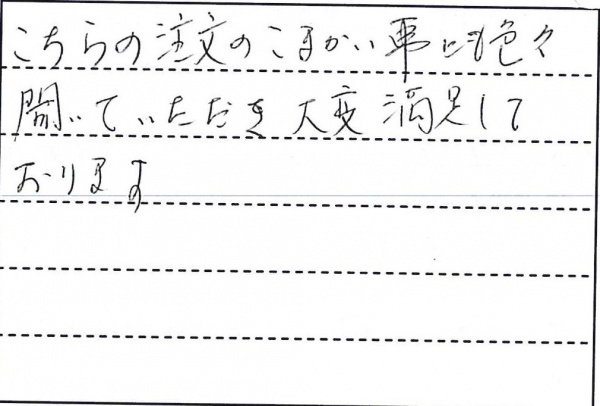 こちらの注文のこまかい事にも色々
聞いていただき大変満足して
おります